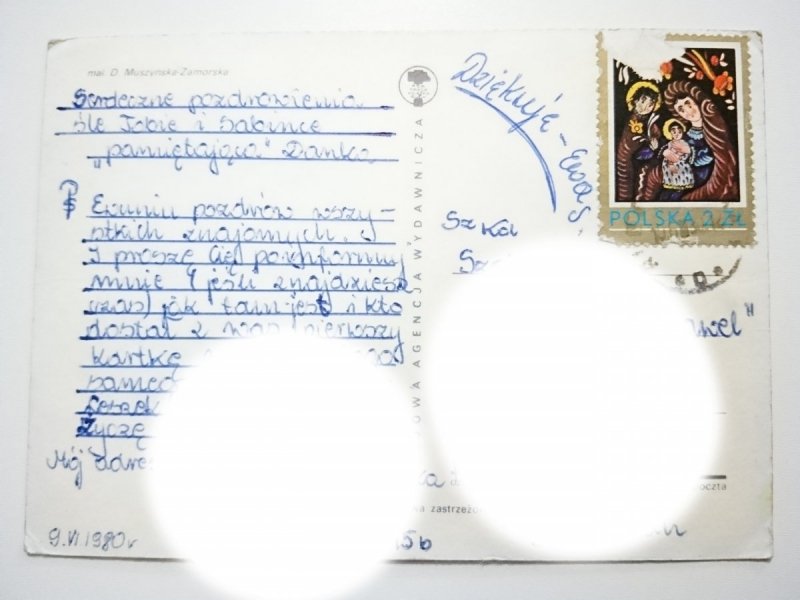 mal. D. Muszyńska-Zamorska
Serdeczne pozdrowienia
śle Tobie i Sabince
„pamiętająca” Danka
PS Ewuniu pozdrów wszy-
stkich znajomych.
I proszę Cię poinformuj
mnie (jeśli znajdziesz
czas) jak tam jest i kto
dostał z was pierwszy
kartkę
Życzę
Mój adres
9.VI 1980r
5b
OWA AGENCJA WYDAWNICZA
Dziękuję – Ewa S.
POLSKA 2 ZŁ
Szkoł
awel"
poczta
wa zastrzeżo